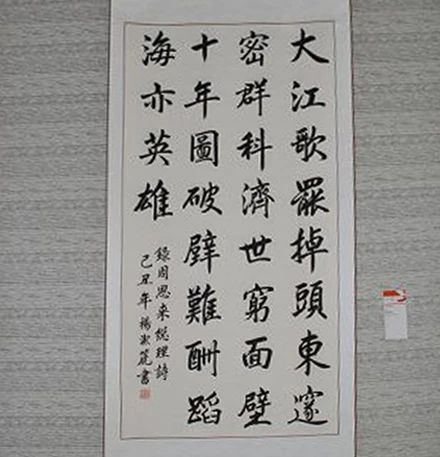 大江歌罷掉頭東邃
密群科濟世窮面壁
十年圖破壁難酬蹈
海亦英雄
錄周恩來總理詩
己丑年楊淑書